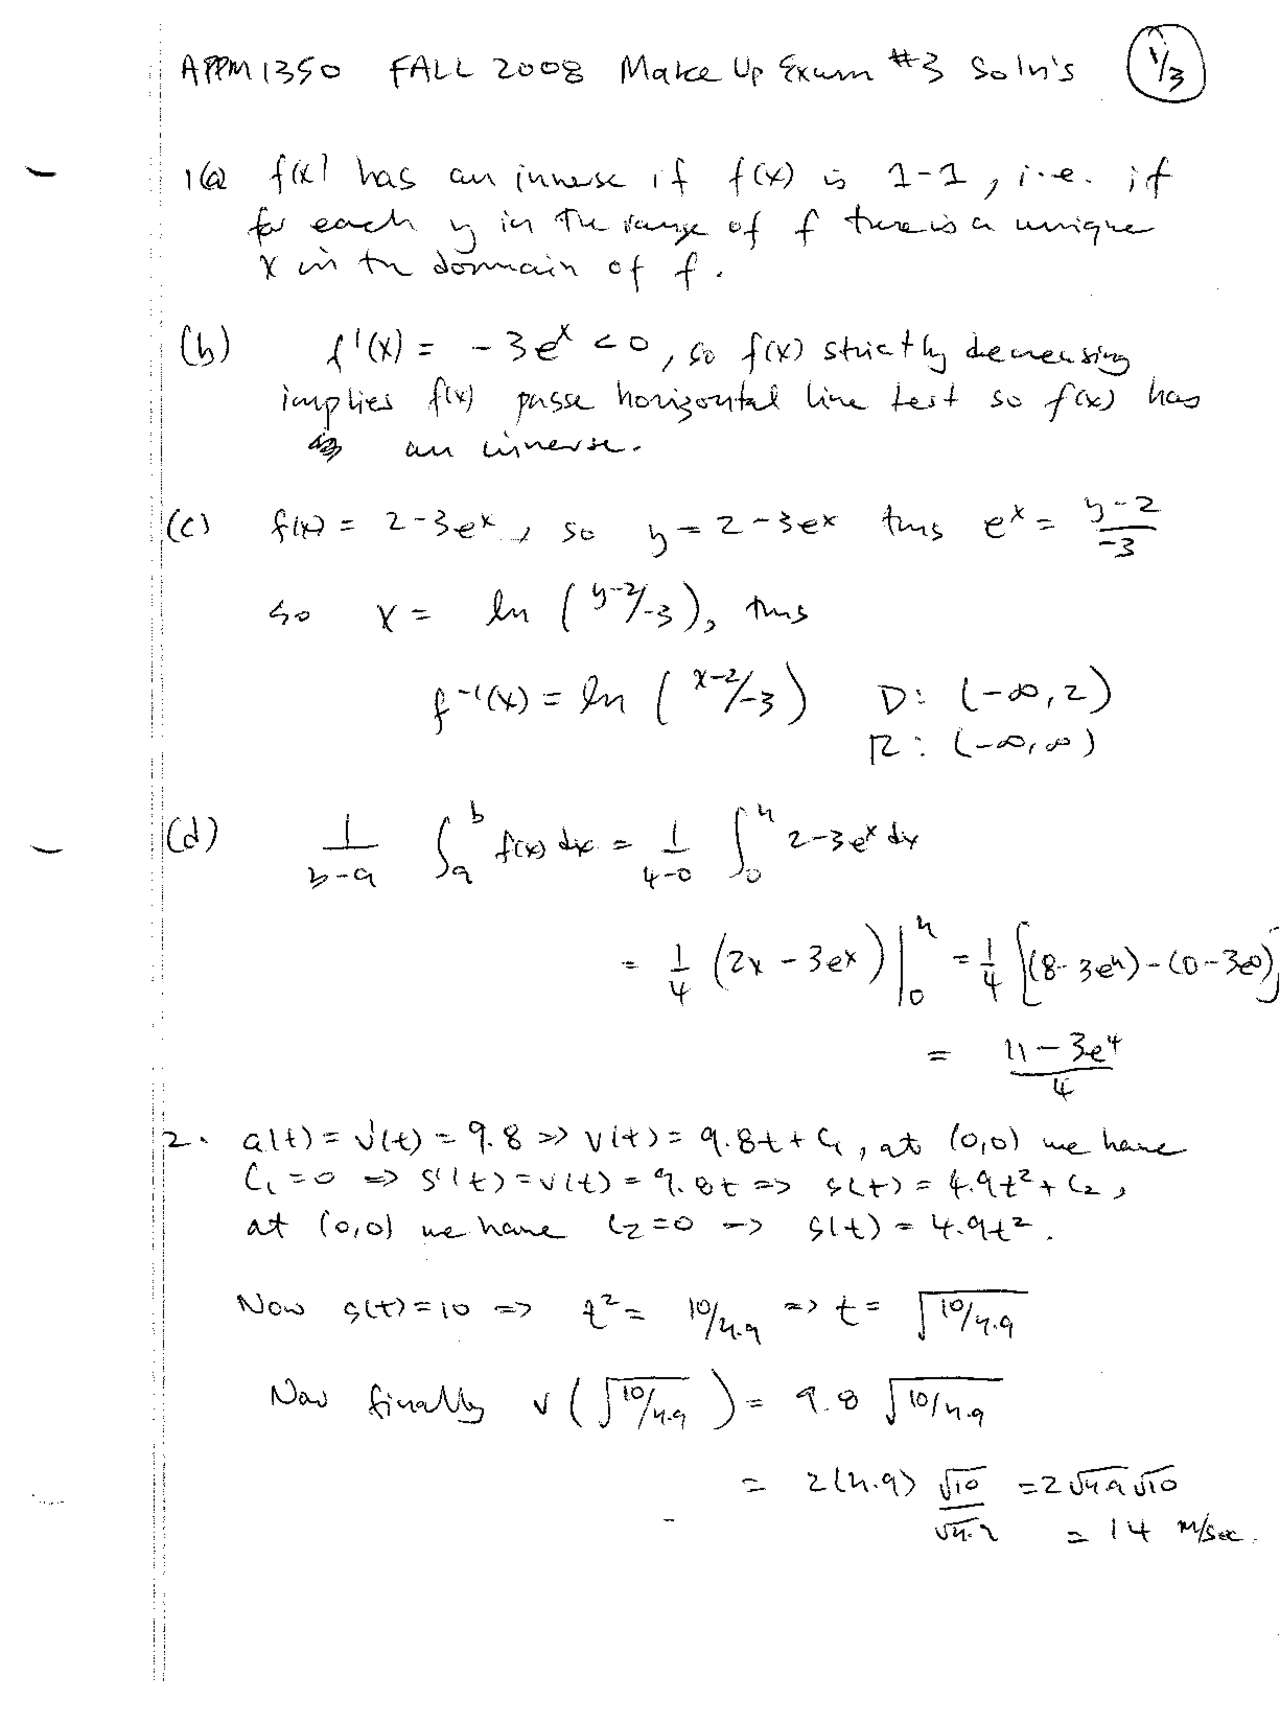 APPM 1350 FALL 2008 Make Up Exam #3 Soln's 1/3
1(a) f(x) has an inverse if f(x) is 1-1, i.e. if
for each y in the range of f there is a unique
x in the domain of f.
(b) f'(x) = -3e^x < 0, so f(x) strictly decreasing
implies f(x) passe horizontal line test so f(x) has
an inverse.
(c) f(x) = 2-3e^x, so y = 2-3e^x thus e^x = (y-2)/-3
so x = ln (y-2/-3), thus
f^-1(x) = ln (x-2/-3) D: (-∞, 2)
R: (-∞, ∞)
(d) 1/(b-a) ∫_a^b f(x) dx = 1/(4-0) ∫_0^4 2-3e^x dx
= 1/4 (2x - 3e^x)|_0^4 = 1/4 [(8-3e^4)-(0-3e^0)]
= (11-3e^4)/4
2. a(t) = v'(t) = 9.8 => v(t) = 9.8t + C1, at (0,0) we have
C1 = 0 => s'(t) = v(t) = 9.8t => s(t) = 4.9t^2 + C2,
at (0,0) we have C2 = 0 -> s(t) = 4.9t^2.
Now s(t) = 10 => t^2 = 10/4.9 => t = √(10/4.9)
Now finally v(√(10/4.9)) = 9.8 √(10/4.9)
= 2(4.9) √10/√4.9 = 2√4.9√10
= 14 m/sec.